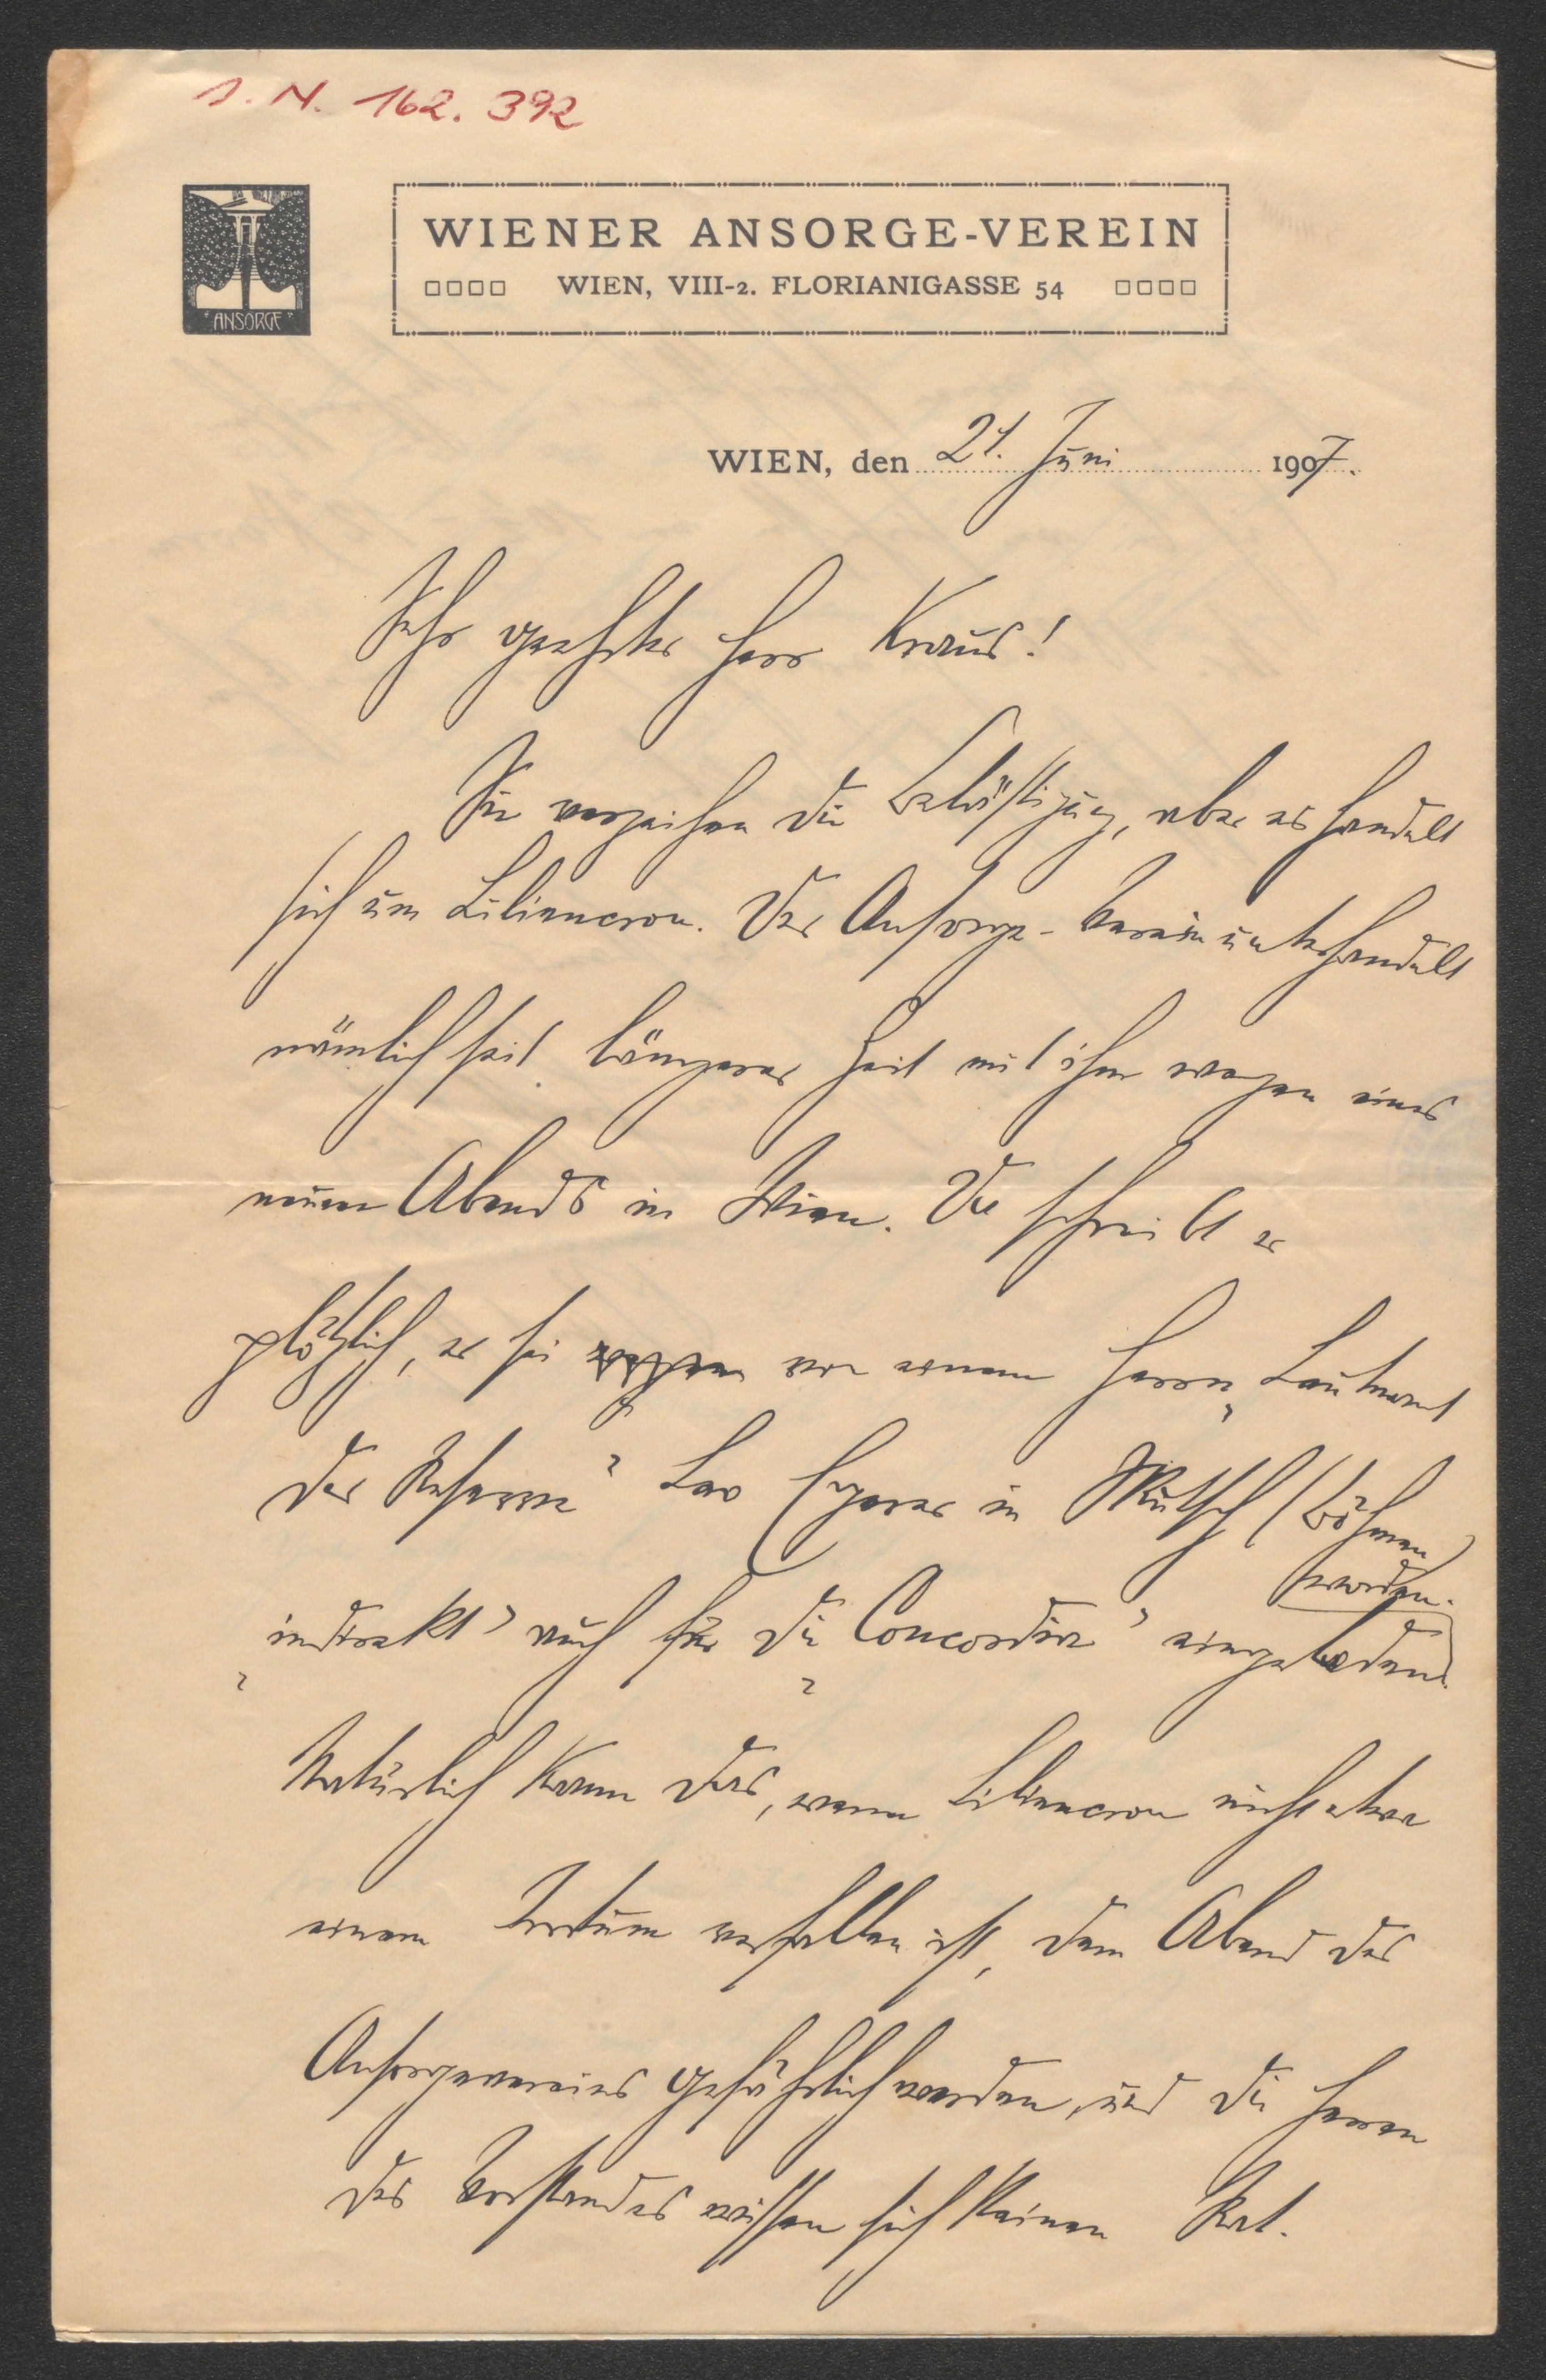 I. N. 162.392
WIENER ANSORGE-VEREIN
WIEN, VIII-2. FLORIANIGASSE 54
"ANSORGE"
WIEN, den 21. Juni 1907.
Sehr geehrter Herr Kraus!
Sie verzeihen die Belästigung, aber es handelt
sich um Liliencron. Der Ansorge-Verein unterhandelt
nämlich seit längerer Zeit mit ihm wegen eines
neuen Abends in Wien. Da schreibt er
plötzlich, er sei von einem Herrn „Leutnant
der Reserve" Leo in (Böhmen)
„indirekt" auch für die „Concordia" eingeladen
worden.
Natürlich kann das, wenn Liliencron nicht etwa
einem Irrtum verfallen ist, dem Abend des
Ansorgevereines gefährlich werden, und die Herren
des Vorstandes wissen sich keinen Rat.